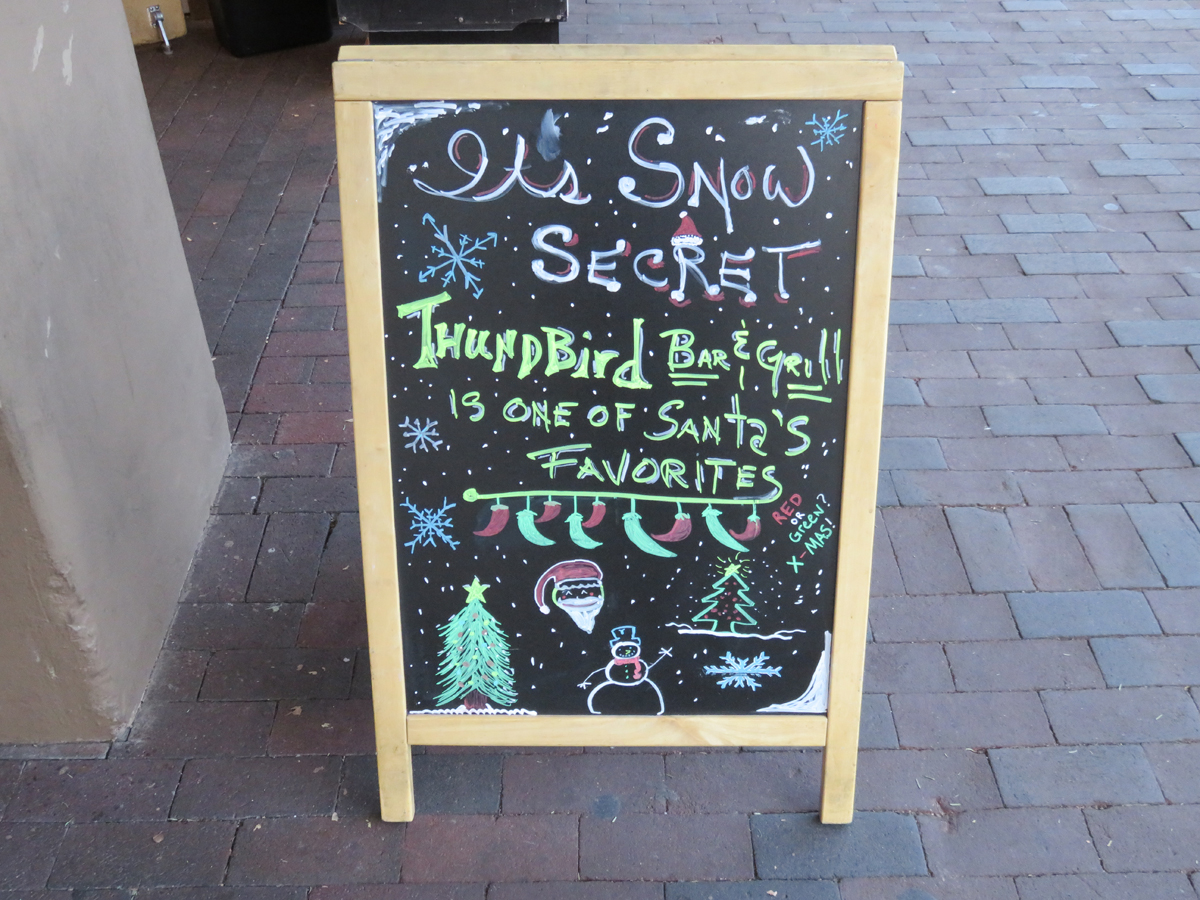 Its Snow
SECRET
THUNDBird BAR & GRill
IS ONE OF SANTA'S
FAVORITES
RED
OR
Green?
X-MAS!